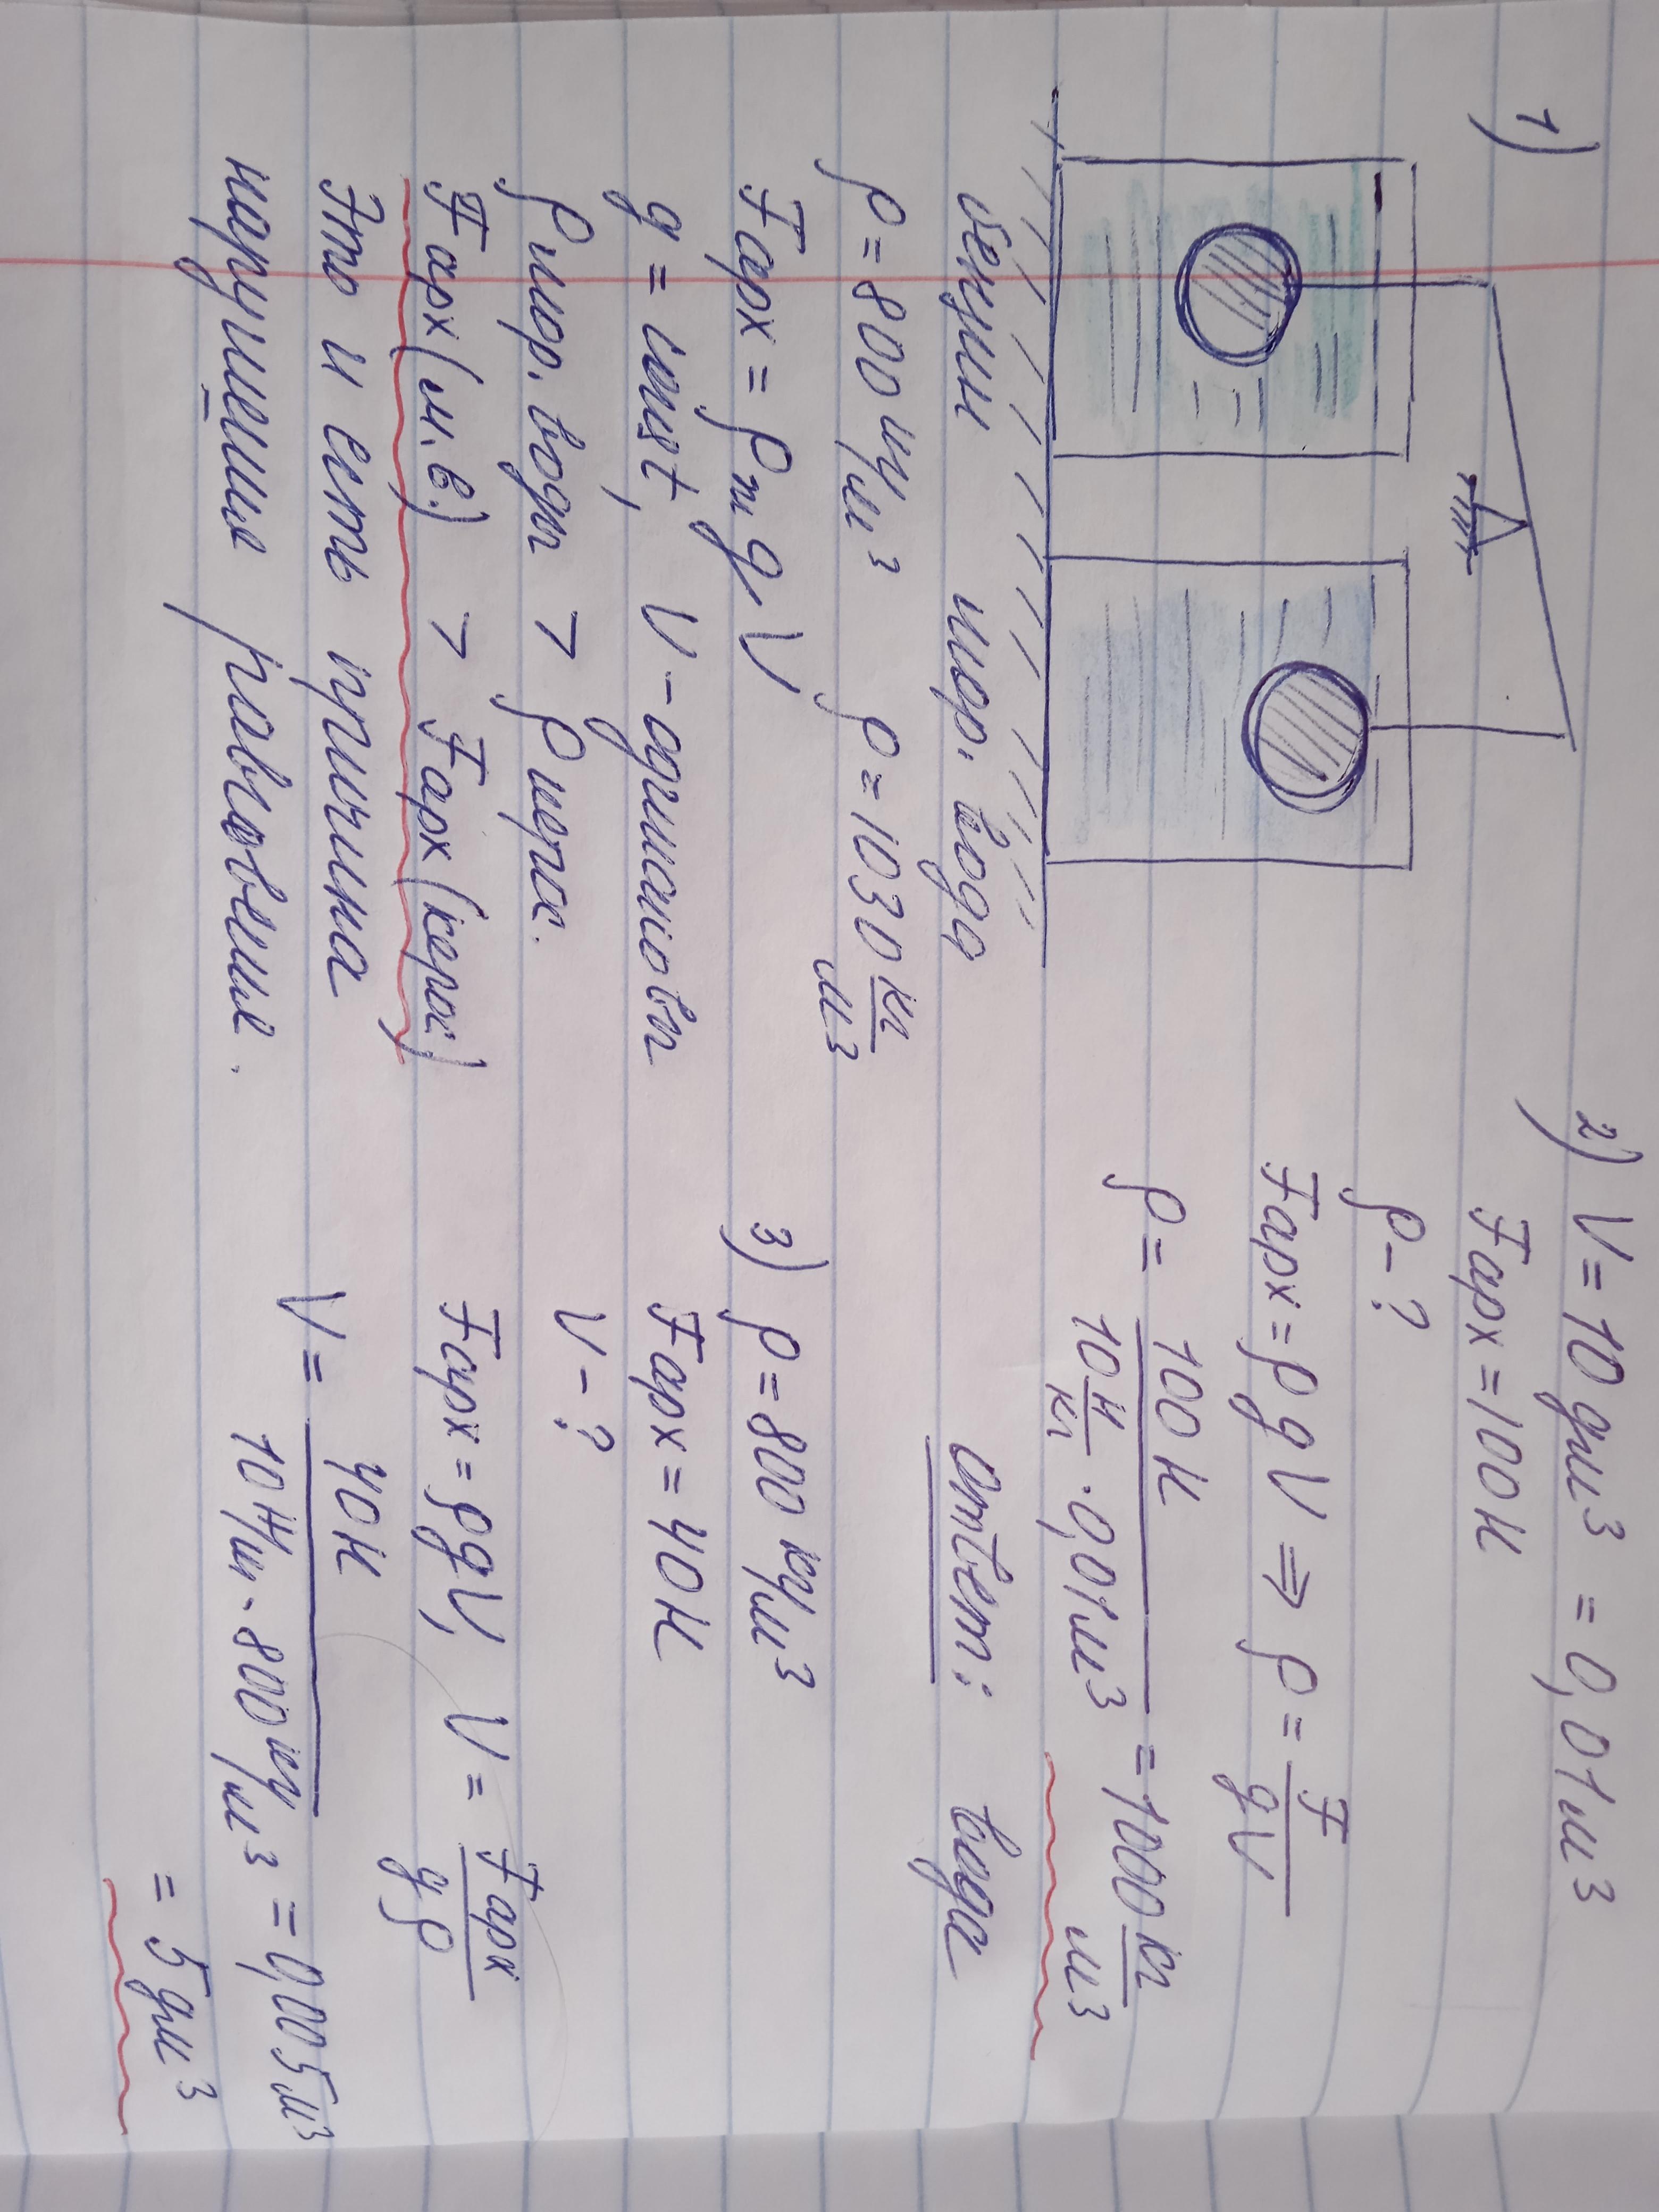 1)
бензин мор. вода
ρ = 800 кг/м³ ρ = 1030 кг/м³
Fарх = ρж g V
g = const, V – одинаковы
ρмор. воды > ρкерос.
Fарх (м.в.) > Fарх (керос)
Это и есть причина
нарушения равновесия.
2) V = 10 дм³ = 0,01 м³
Fарх = 100 Н
ρ – ?
Fарх = ρ g V ⇒ ρ = F / gV
ρ = 100 Н / 10 Н/кг · 0,01 м³ = 1000 кг/м³
Ответ: вода
3) ρ = 800 кг/м³
Fарх = 40 Н
V – ?
Fарх = ρgV, V = Fарх / gρ
V = 40 Н / 10 Н/кг · 800 кг/м³ = 0,005 м³
= 5 дм³